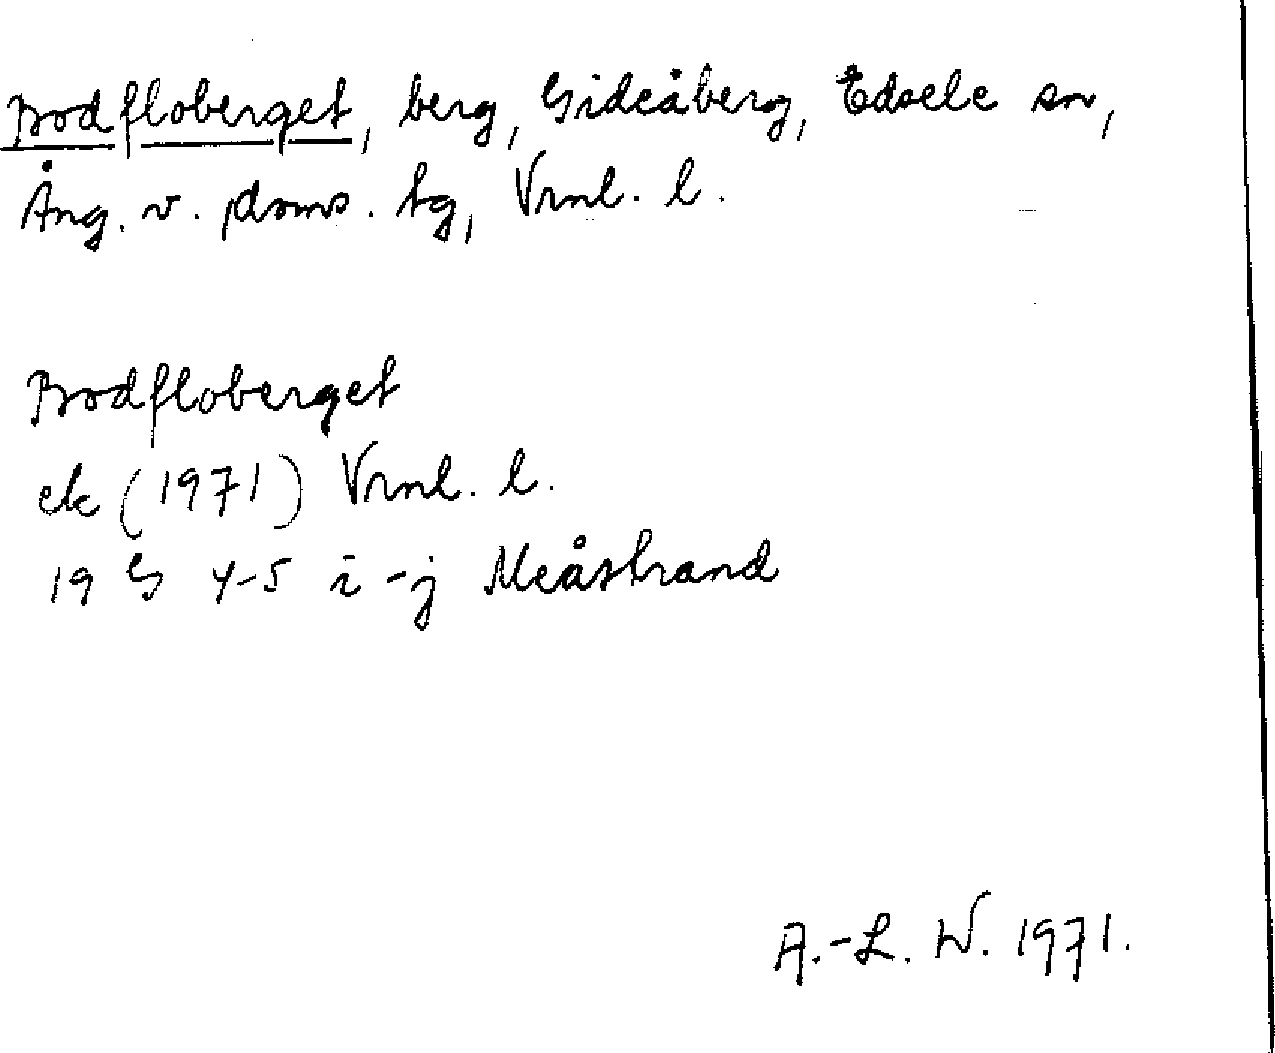 Bodfloberget, berg, Gideåberg, Edsele sn,
Ång. v. doms. tg, Vrnl. l.
Bodfloberget
ek (1971) Vrnl. l.
19 G 4-5 i-j Meåstrand
A.-L. W. 1971.